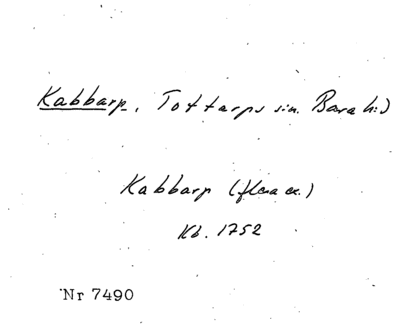 Kabbarp, Tottarps sn. Bara h:d
Kabbarp (flera ex.)
Kb. 1752
Nr 7490